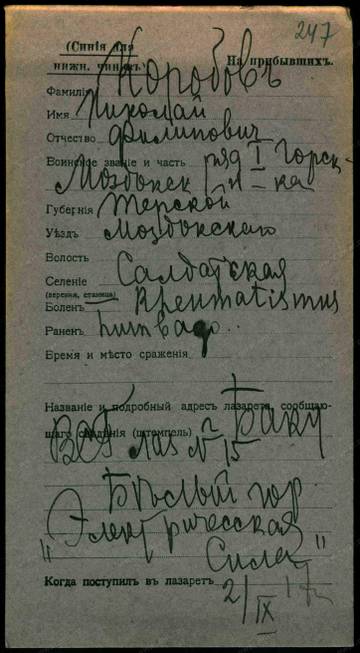 247
(Синія для нижн. чиновъ)
На прибывшихъ.
Фамилія Коробовъ
Имя Николай
Отчество Филипович
Воинское званіе и часть ряд I Горск-
Моздокск
Губернія Терской
Уѣздъ Моздокскаго
Волость
Селеніе Салдатская
(деревня, станица)
Боленъ — Rheumatismus
Раненъ Lumbago
Время и мѣсто сраженія
Названіе и подробный адресъ лазарета, сообщаю-
щаго свѣдѣнія (штемпель) г Баку
ВСГ Лаз № 15
Бѣлый гор
„Электрическая
Сила"
Когда поступилъ въ лазаретъ 2/IX